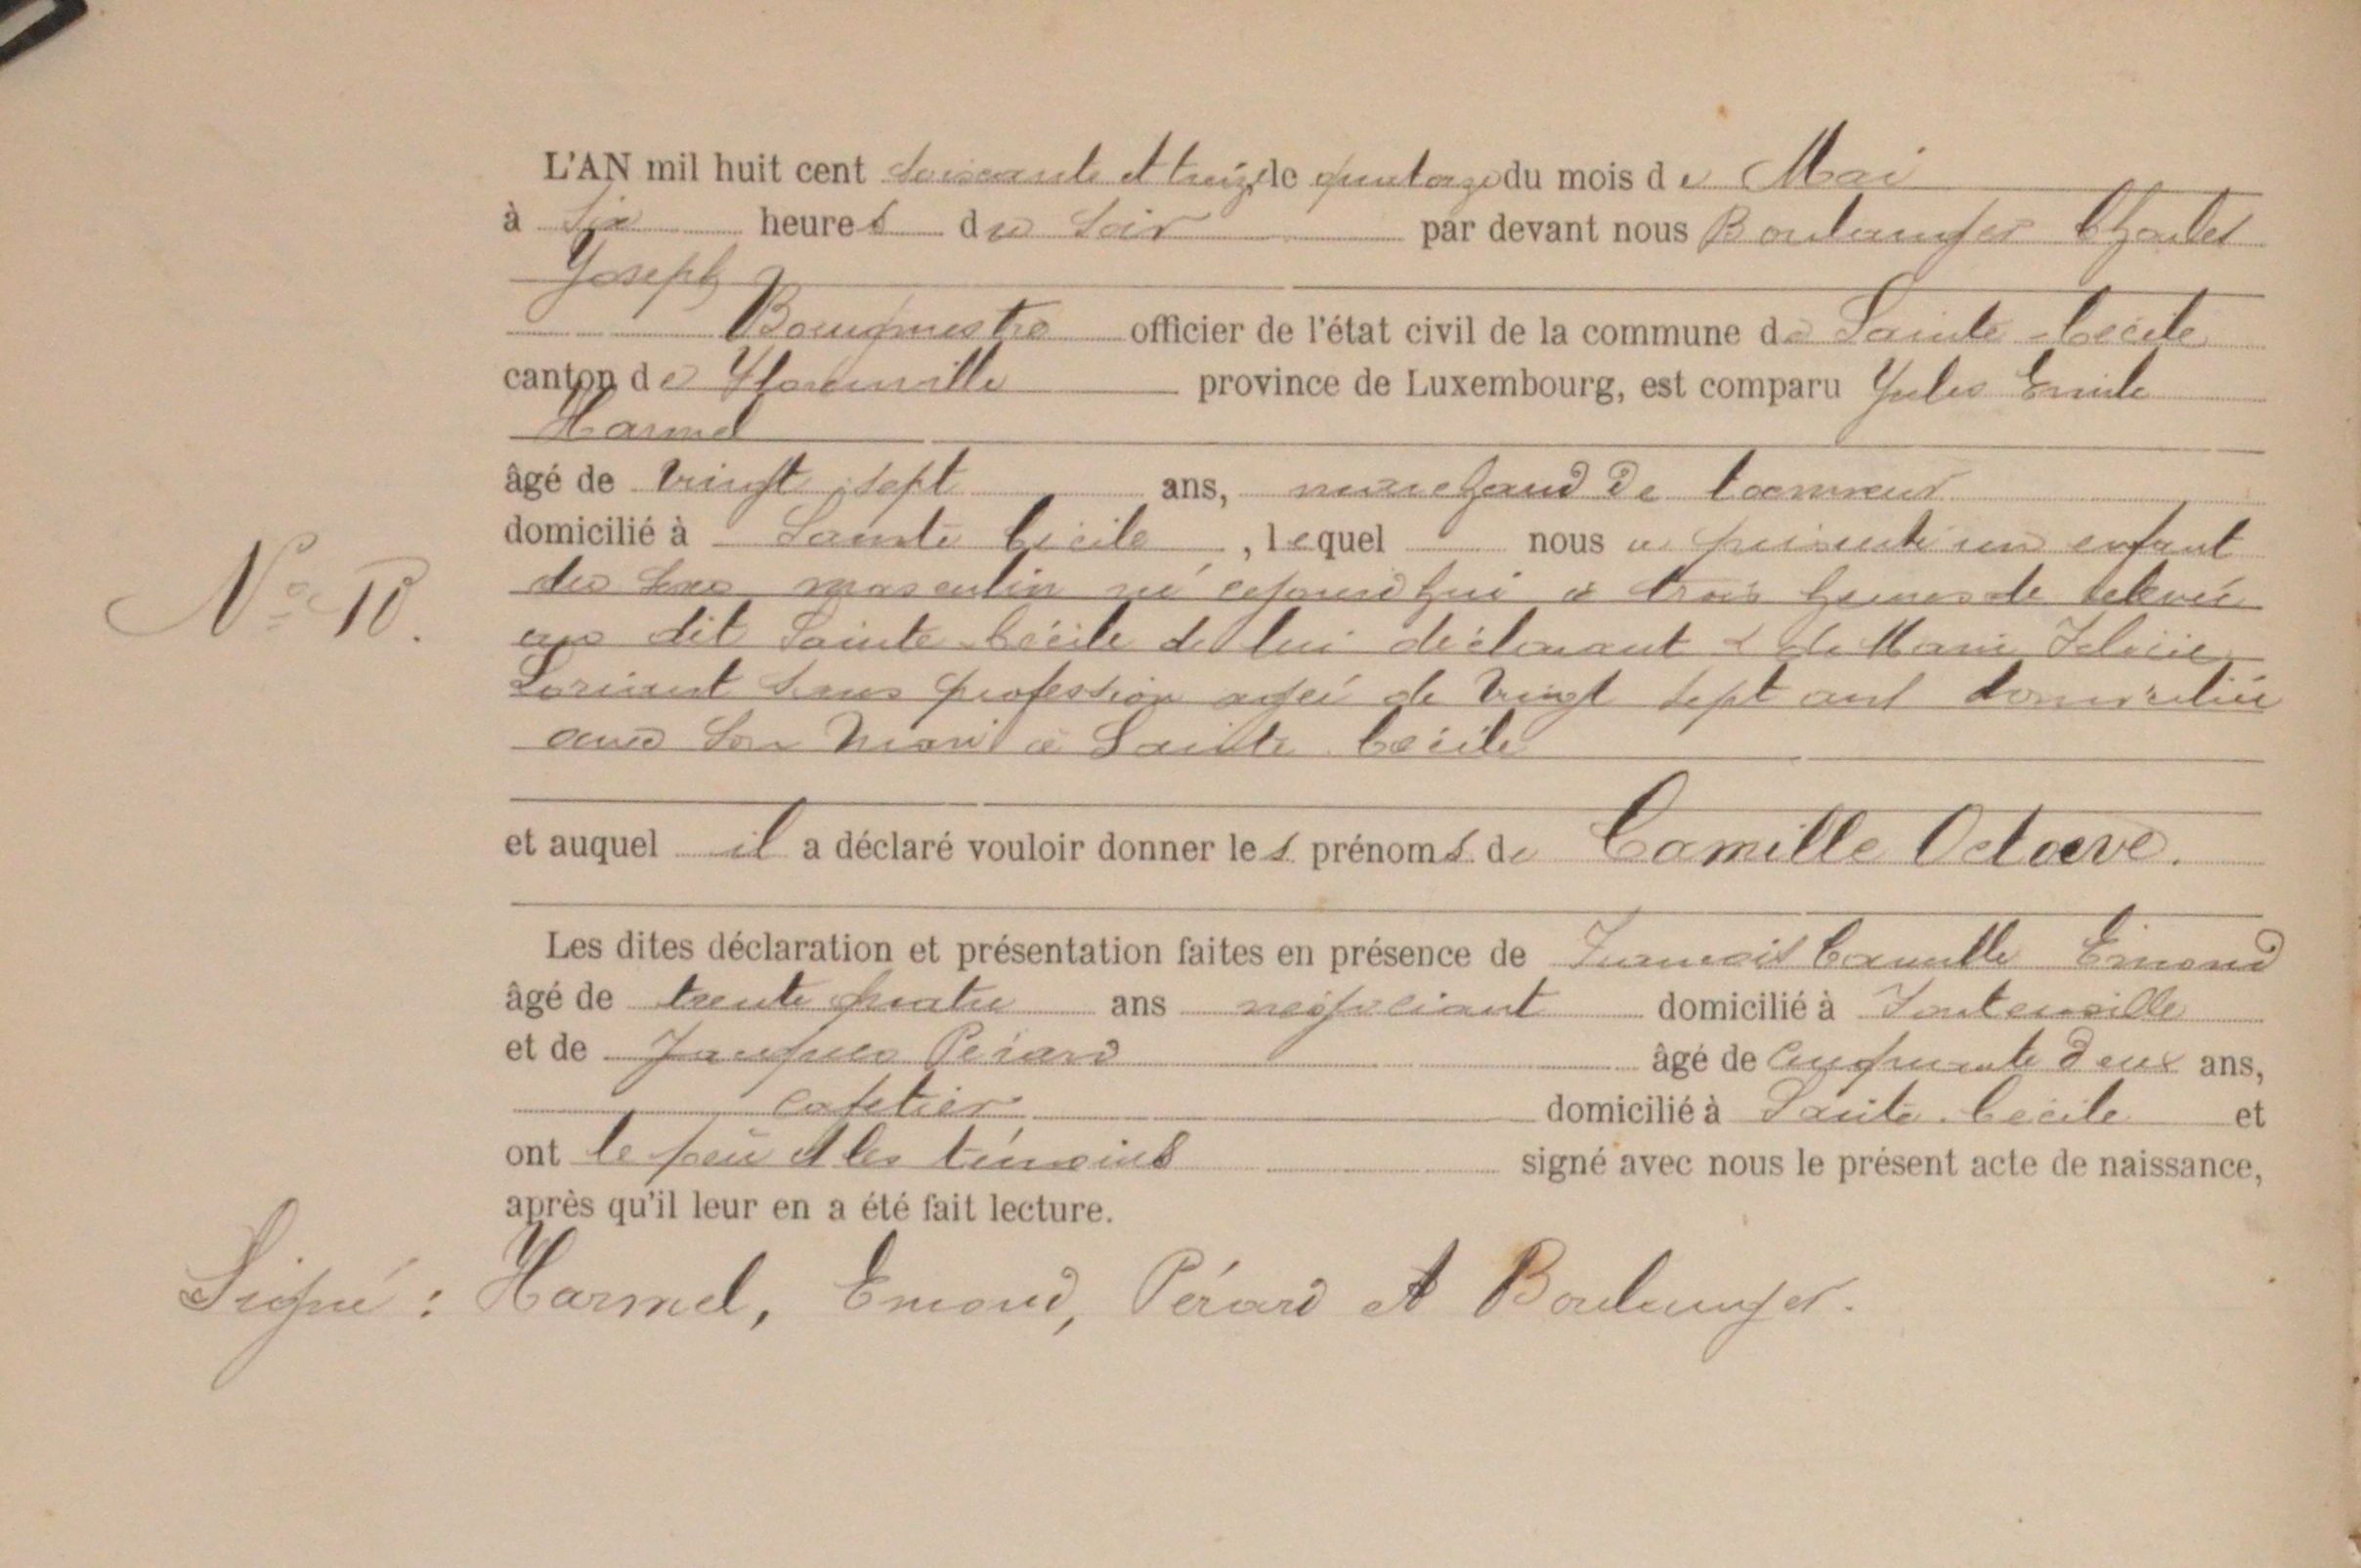 L'AN mil huit cent soixante et treize le quatorze du mois de Mai
à six heures du soir par devant nous Boulanger Charles
Joseph
Bourgmestre officier de l'état civil de la commune de Sainte-Cécile
canton de Florenville province de Luxembourg, est comparu Jules Emile
Harmel
âgé de vingt sept ans, marchand de
domicilié à Sainte Cécile, lequel nous a présenté un enfant
du sexe masculin né cejourd'hui à trois heures de relevée
au dit Sainte-Cécile de lui déclarant & de Marie Félicie
Loriant sans profession agée de vingt sept ans domiciliée
avec son mari à Sainte Cécile
et auquel il a déclaré vouloir donner les prénoms de Camille Octave.
Les dites déclaration et présentation faites en présence de François Camille Emond
N° 10.
âgé de trente quatre ans négociant domicilié à Fontenoille
et de Jacques Pérard âgé de cinquante deux ans,
cafetier domicilié à Sainte-Cécile et
ont le père et les témoins signé avec nous le présent acte de naissance,
après qu'il leur en a été fait lecture.
Signé : Harmel, Emond, Pérard et Boulanger.